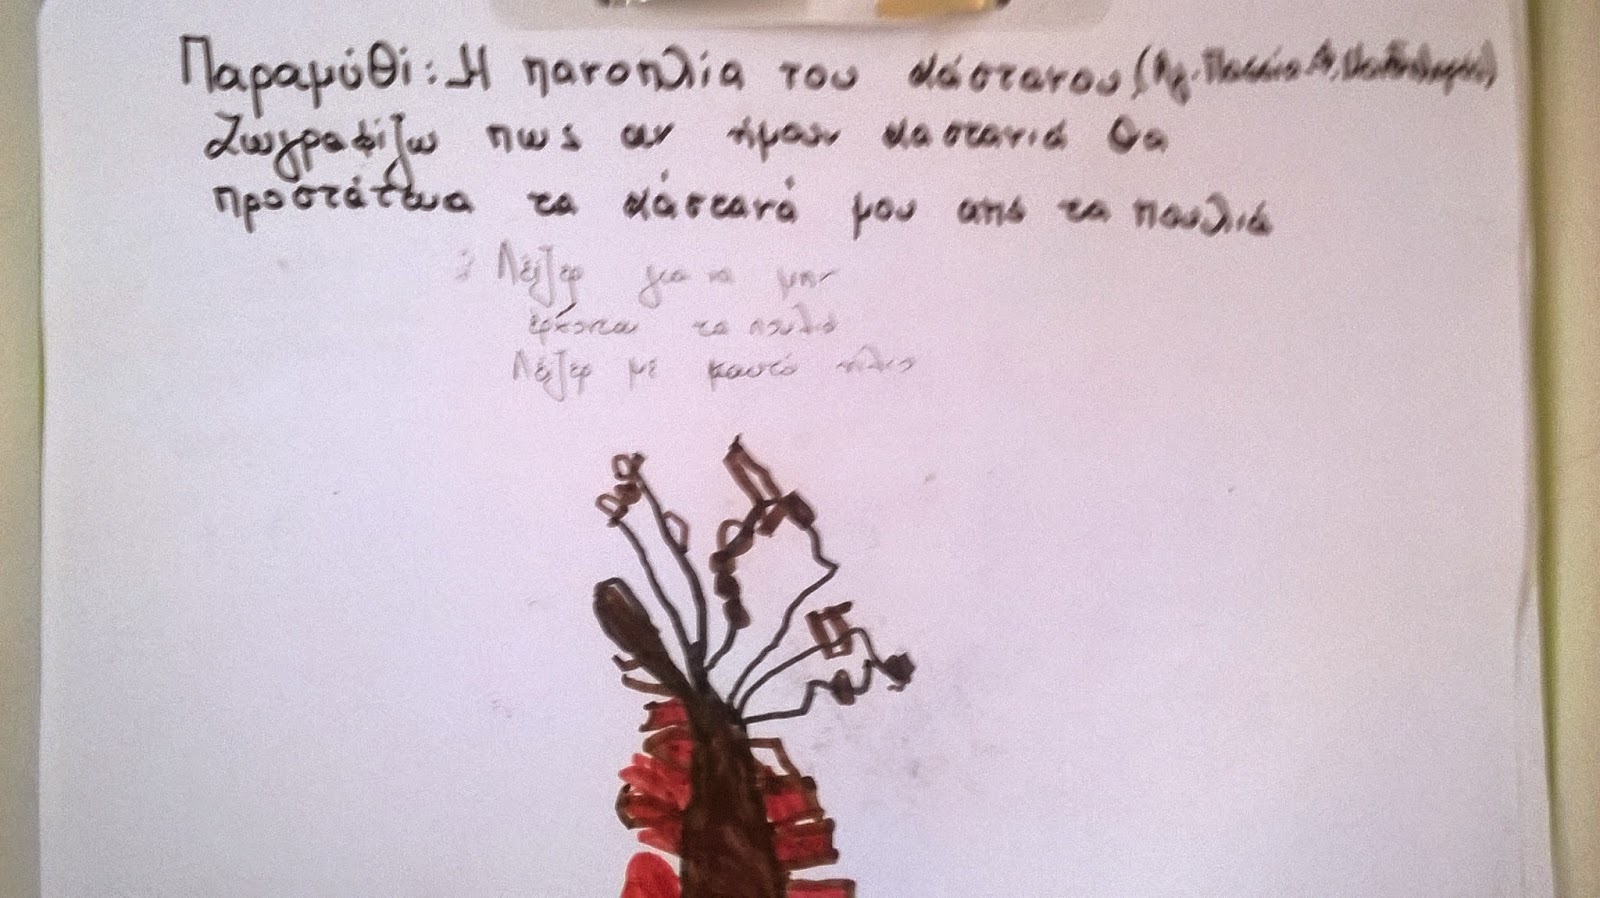 Παραμύθι: Η πανοπλία του κάστανου (Αγ.
Ζωγραφίζω πως αν ήμουν καστανιά θα
προστάτευα τα κάστανά μου από τα πουλιά
: Λέιζερ για να μην
έρχονται τα πουλιά
Λέιζερ με καυτό ήλιο